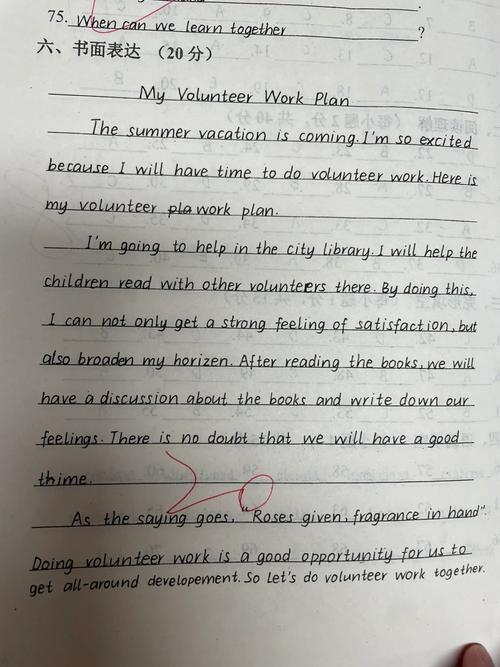 75. When can we learn together ?
六、书面表达 (20 分)
My Volunteer Work Plan
The summer vacation is coming. I'm so excited
because I will have time to do volunteer work. Here is
my volunteer pla work plan.
I'm going to help in the city library. I will help the
children read with other volunteers there. By doing this,
I can not only get a strong feeling of satisfaction, but
also broaden my horizen. After reading the books, we will
have a discussion about the books and write down our
feelings. There is no doubt that we will have a good
thime.
As the saying goes, "Roses given, fragrance in hand".
Doing volunteer work is a good opportunity for us to
get all-around developement. So Let's do volunteer work together.